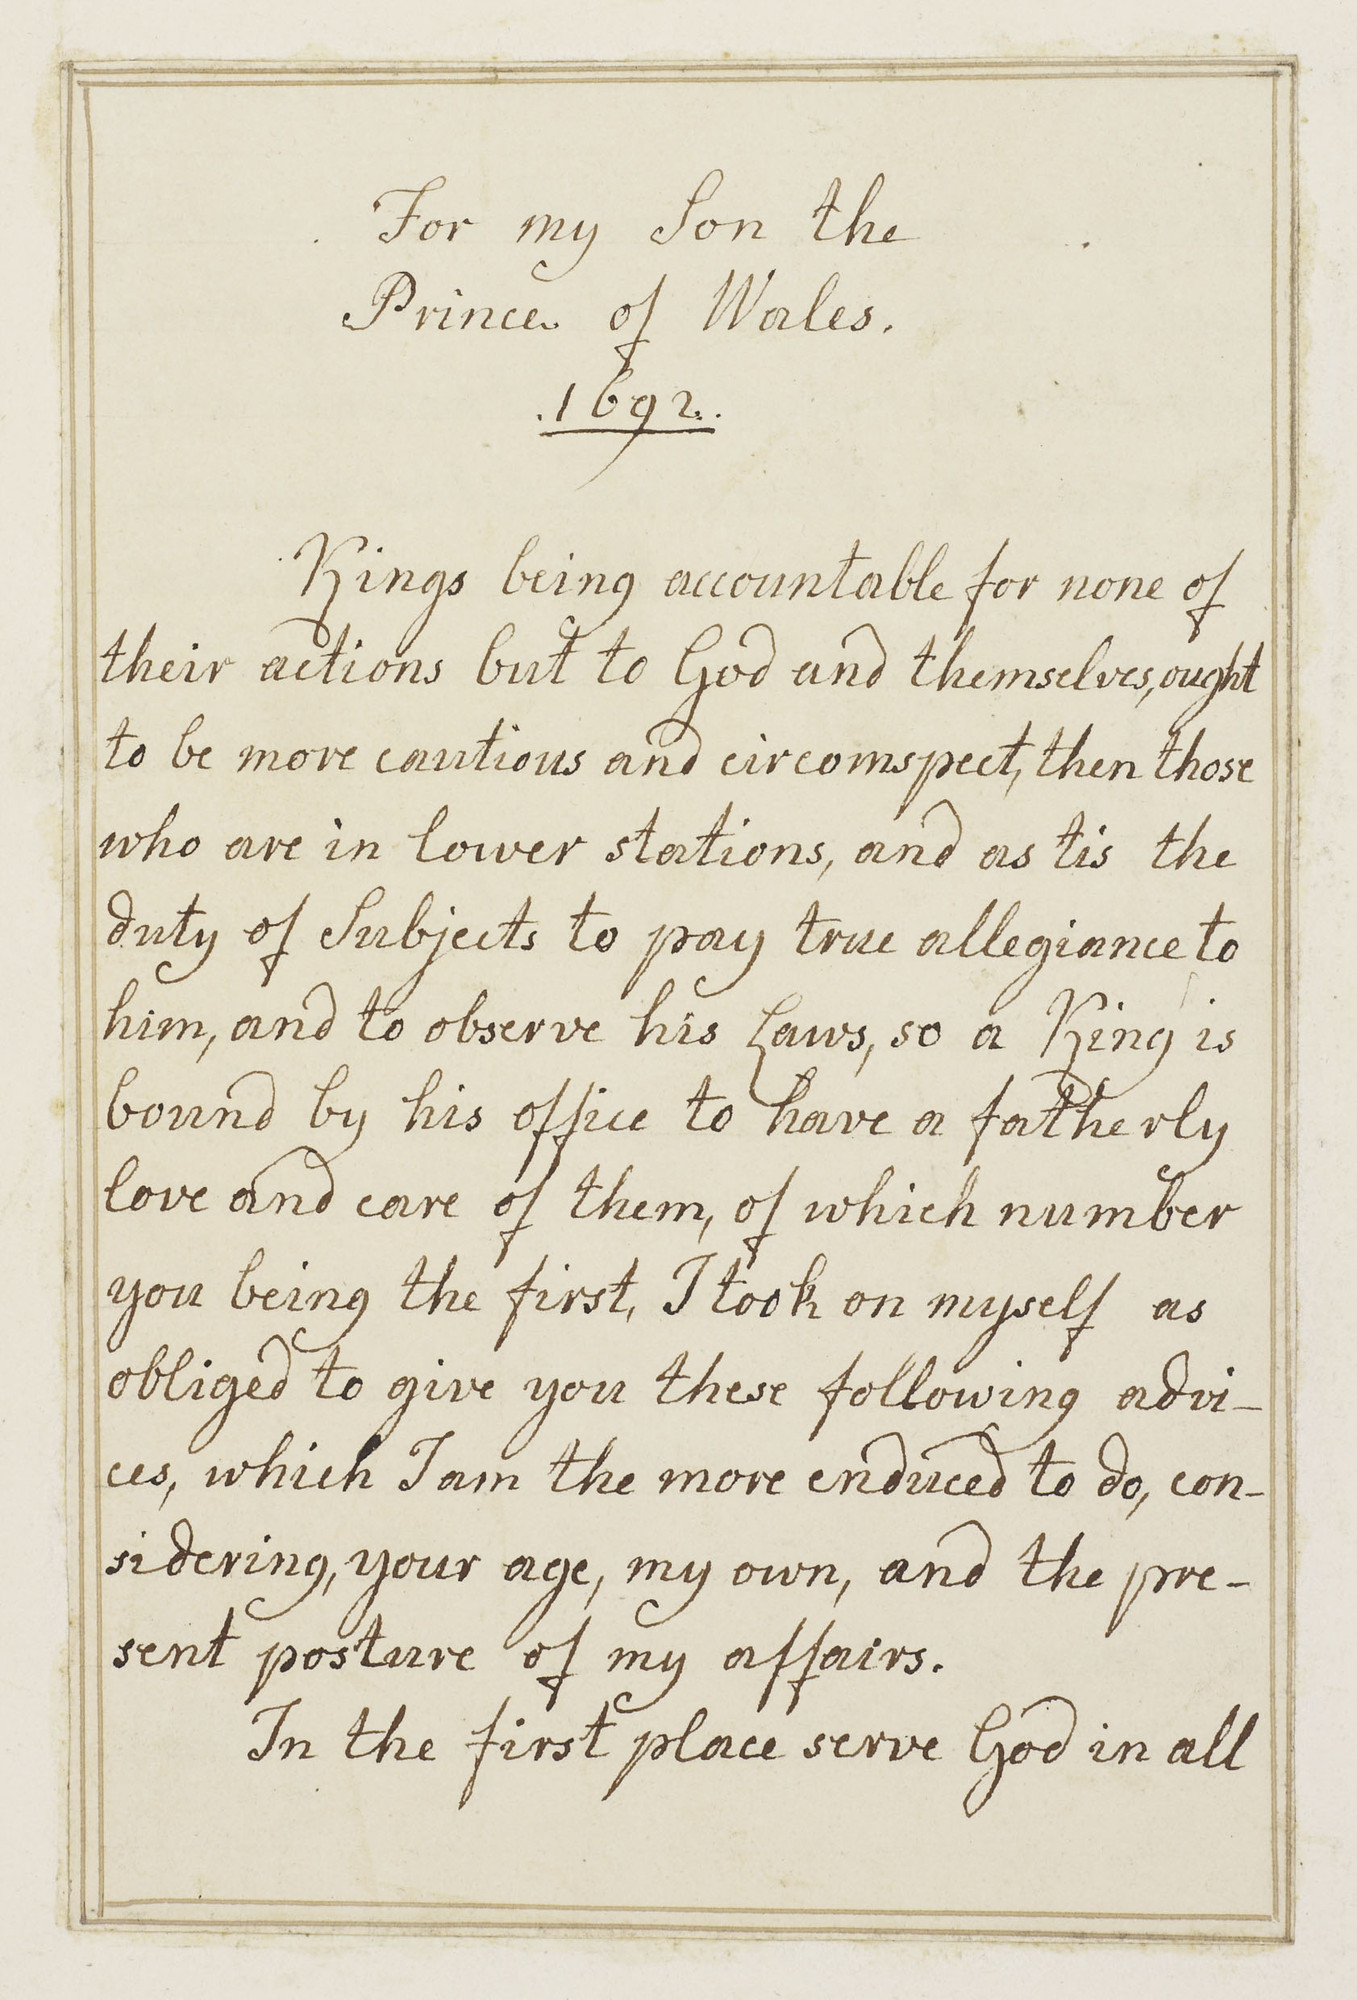 For my Son the
Prince of Wales.
.1692.
Kings being accountable for none of
their actions but to God and themselves, ought
to be more cautious and circomspect, then those
who are in lower stations, and as tis the
duty of Subjects to pay true allegiance to
him, and to observe his Laws, so a King is
bound by his office to have a fatherly
love and care of them, of which number
you being the first, I took on myself as
obliged to give you these following advi-
ces, which I am the more enduced to do, con-
sidering, your age, my own, and the pre-
sent posture of my affairs.
In the first place serve God in all